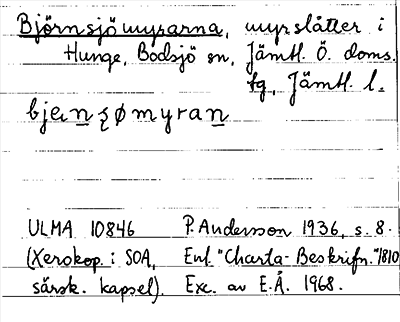 Björnsjömyrarna, myrslåtter i
Hunge, Bodsjö sn, Jämtl. Ö. doms.
tg, Jämtl. l.
bjen̲ʂømyran̲
ULMA 10846 P. Andersson 1936, s. 8.
(Xerokop. i SOA, Enl. "Charta-Beskrifn." 1810
särsk. kapsel). Exc. av E.Å. 1968.